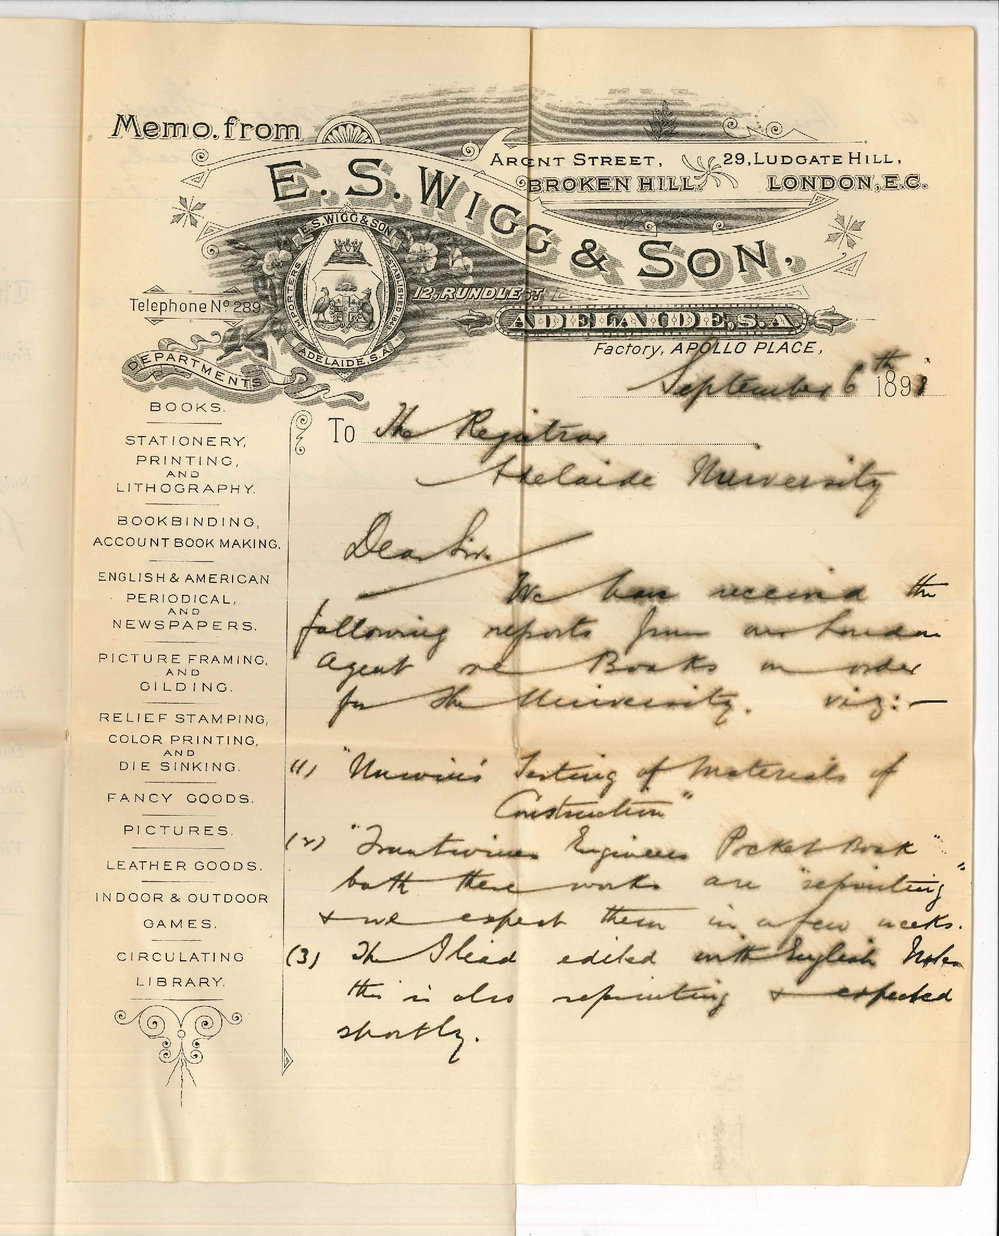 Memo. from
E. S. WIGG & SON,
ARGENT STREET,
BROKEN HILL,
29, LUDGATE HILL,
LONDON, E.C.
E.S. WIGG & SON
IMPORTERS
ESTABLISHED
ADELAIDE, S.A.
12, RUNDLE ST
ADELAIDE, S.A.
Factory, APOLLO PLACE,
Telephone No 289
DEPARTMENTS
BOOKS.
STATIONERY,
PRINTING,
AND
LITHOGRAPHY.
BOOKBINDING,
ACCOUNT BOOK MAKING.
ENGLISH & AMERICAN
PERIODICAL,
AND
NEWSPAPERS.
PICTURE FRAMING,
AND
GILDING.
RELIEF STAMPING,
COLOR PRINTING,
AND
DIE SINKING.
FANCY GOODS.
PICTURES.
LEATHER GOODS.
INDOOR & OUTDOOR
GAMES.
CIRCULATING
LIBRARY.
September 6th 189
To The Registrar
Adelaide University
Dear Sir
We have received the
following reports from our London
Agent re Books on order
for the University. viz:—
(1) "Unwin's Testing of Materials of
Construction"
(2) "Trautwines Engineers Pocket Book"
both these works are "reprinting"
& we expect them in a few weeks.
(3) The Iliad edited with English Notes
this is also reprinting & expected
shortly.